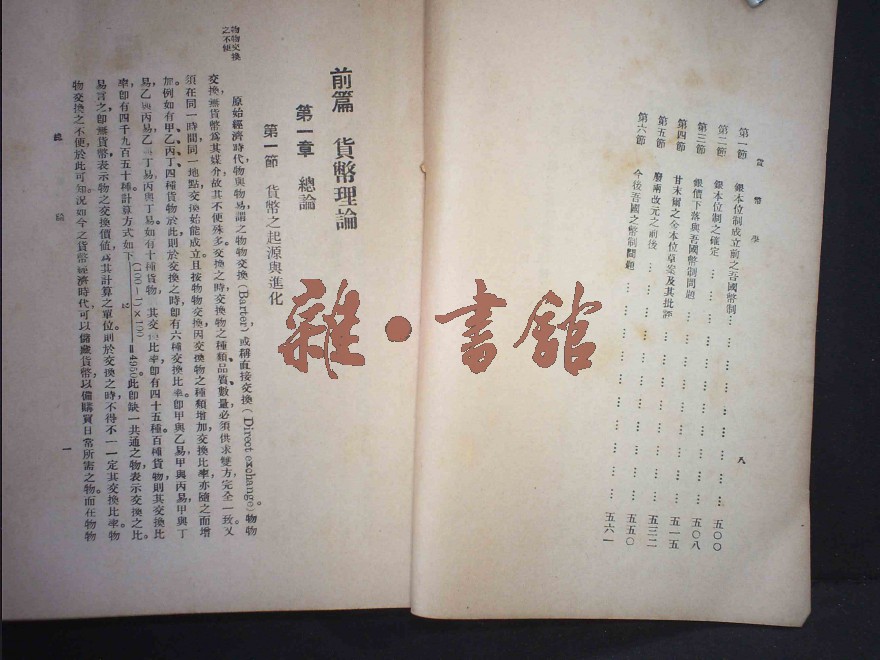 貨幣學
八
第一節　銀本位制成立前之吾國幣制……五〇〇
第二節　銀本位制之確定……五〇八
第三節　銀價下落與吾國幣制問題……五一五
第四節　甘末爾之金本位草案及其批評……五三二
第五節　廢兩改元之前後……五五〇
第六節　今後吾國之幣制問題……五六一
前篇　貨幣理論
第一章　總論
第一節　貨幣之起源與進化
物物交換
之不便
原始經濟時代，物與物易，謂之物物交換（Barter）或稱直接交換（Direct exchange）。物物
交換無貨幣爲其媒介，故其不便殊多。交換之時，交換物之種類、品質、數量必須供求雙方完全一致。又
須在同一時間同一地點，交換始能成立。且按物物交換，因交換物之種類增加，交換比率亦隨之而增
加。例如有甲、乙、丙、丁四種貨物，於此則於交換之時，卽有六種交換比率。卽甲與乙易，甲與丙易，甲與丁
易，乙與丙易，乙與丁易，丙與丁易。如有十種貨物，其交換比率卽有四十五種。百種貨物，則其交換比
率卽有四千九百五十種。計算方式如下 (100−1)×100 / 2 =4950 此卽缺一共通之物，表示交換之比
易言之，卽無貨幣表示物之交換價値，爲其計算之單位，則於交換之時，不得不一一定其交換比率。物
物交換之不便，於此可知。況如今之貨幣經濟時代，可以儲藏貨幣，以備購買日常所需之物。而在物物
總論
一
雜·書館